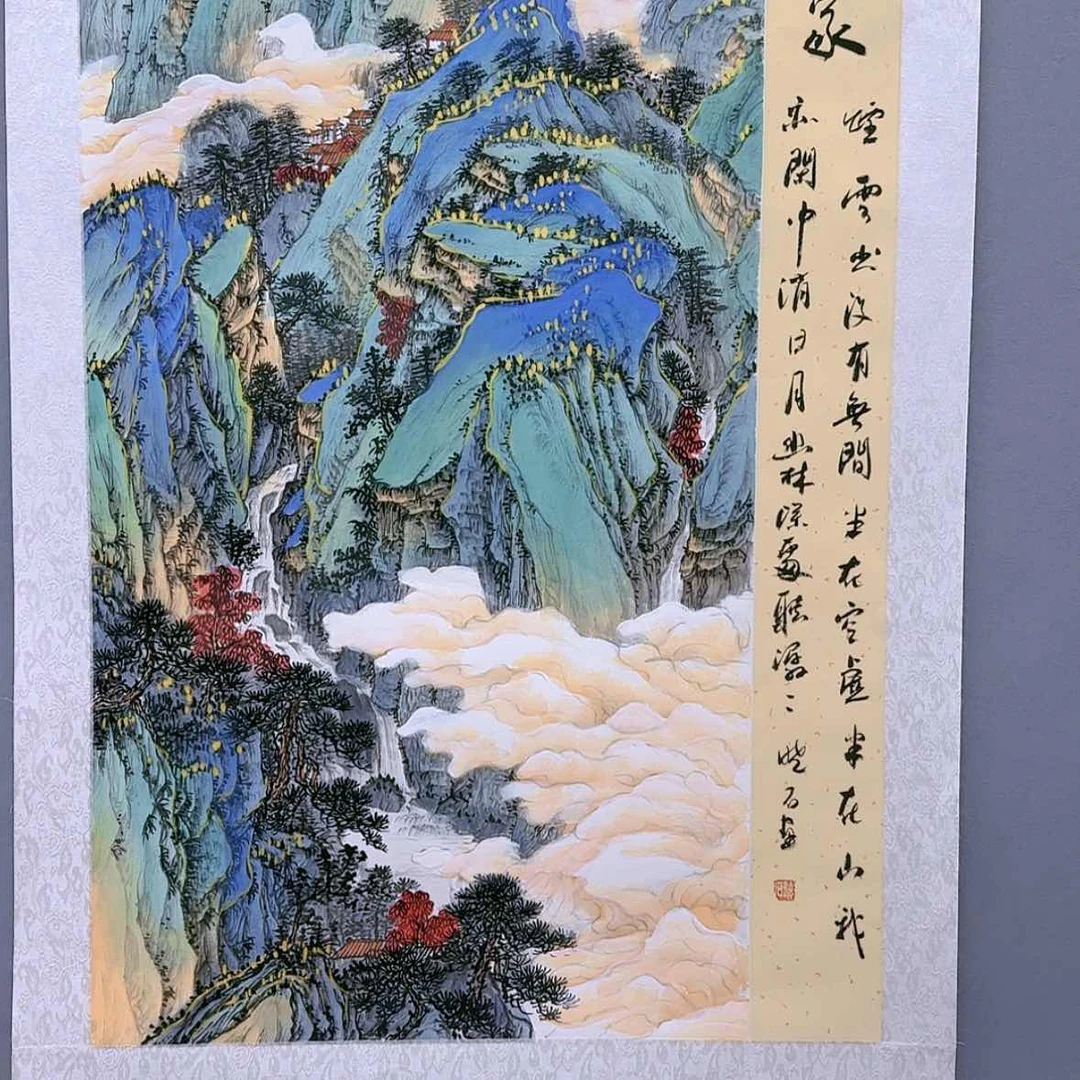 家
煙雲出没有無間半在空虛半在山我
亦閑中消日月幽林深處聽潺〻 晓石畫